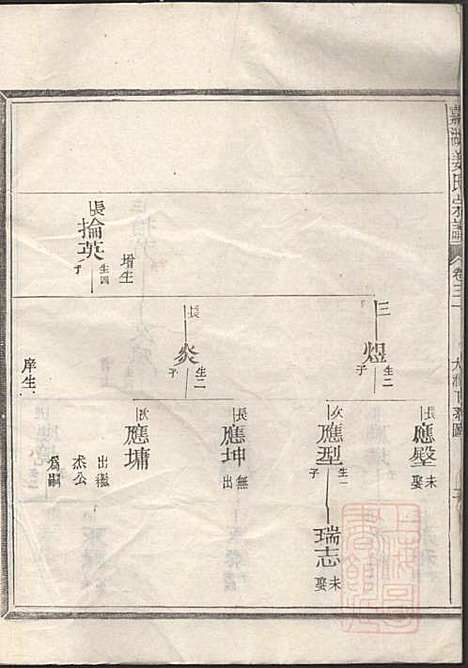 嘉湖姜氏宗譜
卷三
三
煜
生二子
長
應壂
未娶
次
應型
生一子
瑞志
未娶
長
炎
生二子
長
應坤
無出
次
應墉
出繼
烋公
為嗣
長
掄英
生四子
增生
庠生